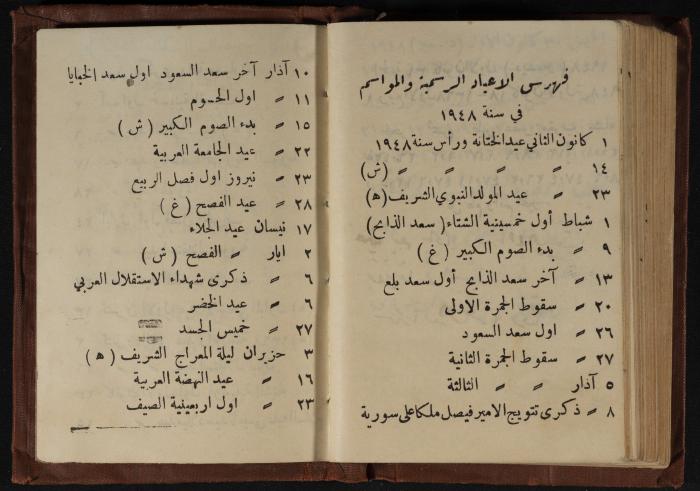 فهرس الاعياد الرسمية والمواسم
في سنة ١٩٤٨
١ كانون الثاني عيد الختانة ورأس سنة ١٩٤٨
١٤ = = = = (ش)
٢٣ = عيد المولد النبوي الشريف (ه)
١ شباط أول خمسينية الشتاء (سعد الذابح)
٩ = بدء الصوم الكبير (غ)
١٣ = آخر سعد الذابح أول سعد بلع
٢٠ = سقوط الجمرة الاولى
٢٦ = اول سعد السعود
٢٧ = سقوط الجمرة الثانية
٥ آذار = = الثالثة
٨ = ذكرى تتويج الامير فيصل ملكا على سورية
١٠ آذار آخر سعد السعود اول سعد الخبايا
١١ = اول الحسوم
١٥ = بدء الصوم الكبير (ش)
٢٢ = عيد الجامعة العربية
٢٣ = نيروز اول فصل الربيع
٢٨ = عيد الفصح (غ)
١٧ نيسان عيد الجلاء
٢ ايار = الفصح (ش)
٦ = ذكرى شهداء الاستقلال العربي
٦ = عيد الخضر
٢٧ = خميس الجسد
٣ حزيران ليلة المعراج الشريف (ه)
١٦ = عيد النهضة العربية
٢٣ = اول اربعينية الصيف